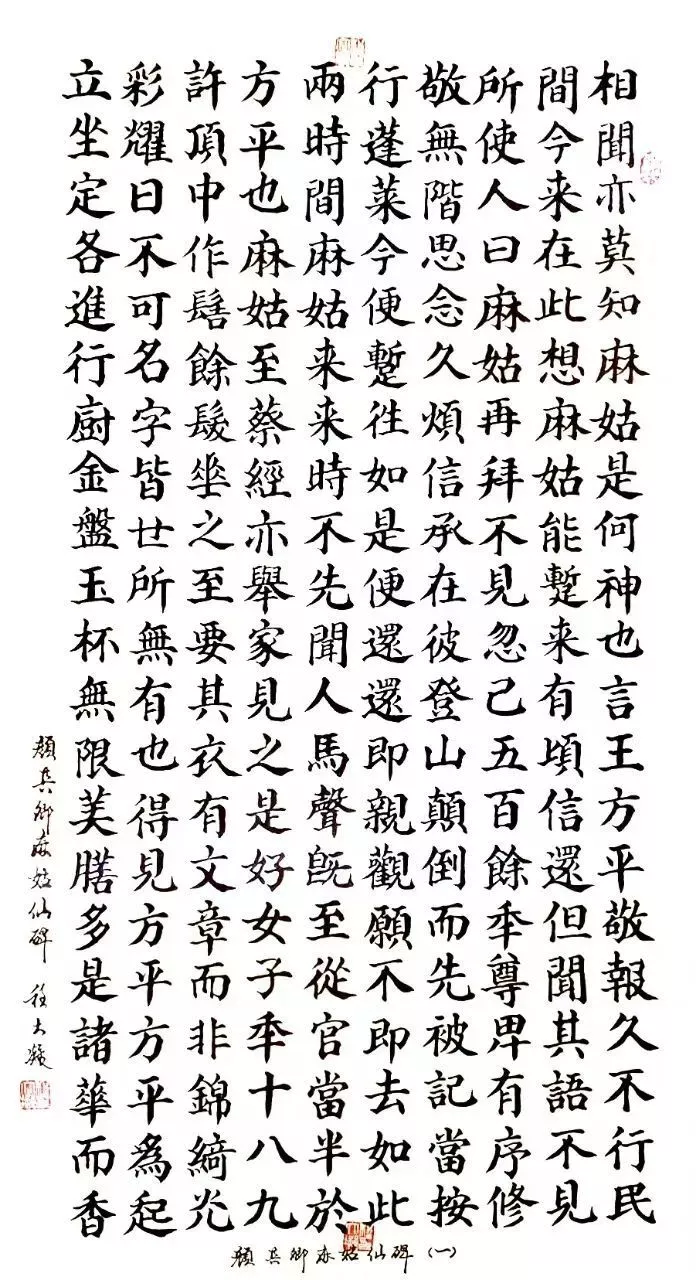 相聞亦莫知麻姑是何神也言王方平敬報久不行民
間今来在此想麻姑能蹔来有頃信還但聞其語不見
所使人曰麻姑再拜不見忽已五百餘秊尊卑有序修
敬無階思念久煩信承在彼登山顛倒而先被記當按
行蓬萊今便蹔往如是便還還即親觀願不即去如此
兩時間麻姑来来時不先聞人馬聲既至從官當半於
方平也麻姑至蔡經亦舉家見之是好女子秊十八九
許頂中作髻餘髮垂之至要其衣有文章而非錦綺光
彩耀曰不可名字皆世所無有也得見方平方平為起
立坐定各進行廚金盤玉杯無限美膳多是諸華而香
顏真卿麻姑仙碑
顏真卿麻姑仙碑(一)